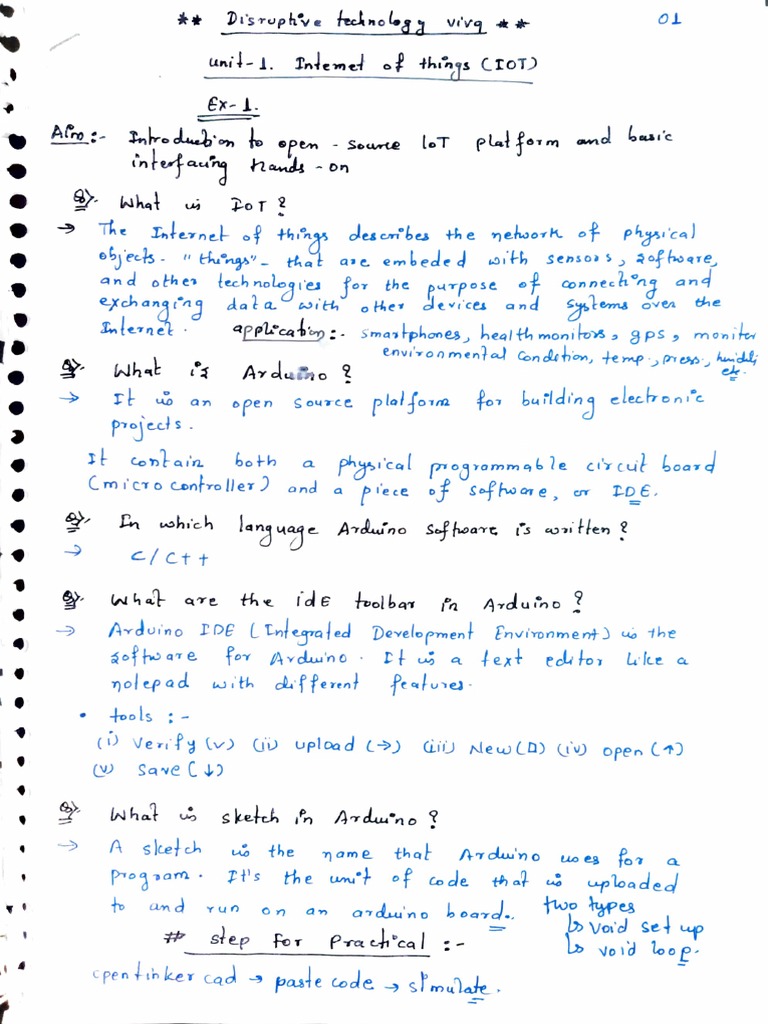 ** Disruptive technology viva ** 01
unit-1. Internet of things (IOT)
Ex-1.
Aim:- Introduction to open-source IoT platform and basic
interfacing Hands-on
Q). What is IoT?
→ The Internet of things describes the network of physical
objects- "things"- that are embeded with sensors, software,
and other technologies for the purpose of connecting and
exchanging data with other devices and systems over the
Internet. application:- smartphones, health monitors, gps, monitor
environmental condition, temp., press., humidity
etc.
Q). What is Arduino?
→ It is an open source platform for building electronic
projects.
It contain both a physical programmable circuit board
(microcontroller) and a piece of software, or IDE.
Q). In which language Arduino software is written?
→ C/C++
Q). What are the idE toolbar in Arduino?
→ Arduino IDE (Integrated Development Environment) is the
software for Arduino. It is a text editor like a
notepad with different features.
• tools :-
(i) Verify (v) (ii) upload (→) (iii) New (□) (iv) open (↑)
(v) Save (↓)
Q). What is sketch in Arduino?
→ A sketch is the name that Arduino uses for a
program. It's the unit of code that is uploaded
to and run on an arduino board. two types
↳ void set up
↳ void loop.
# step for Practical :-
open tinker cad → paste code → simulate.